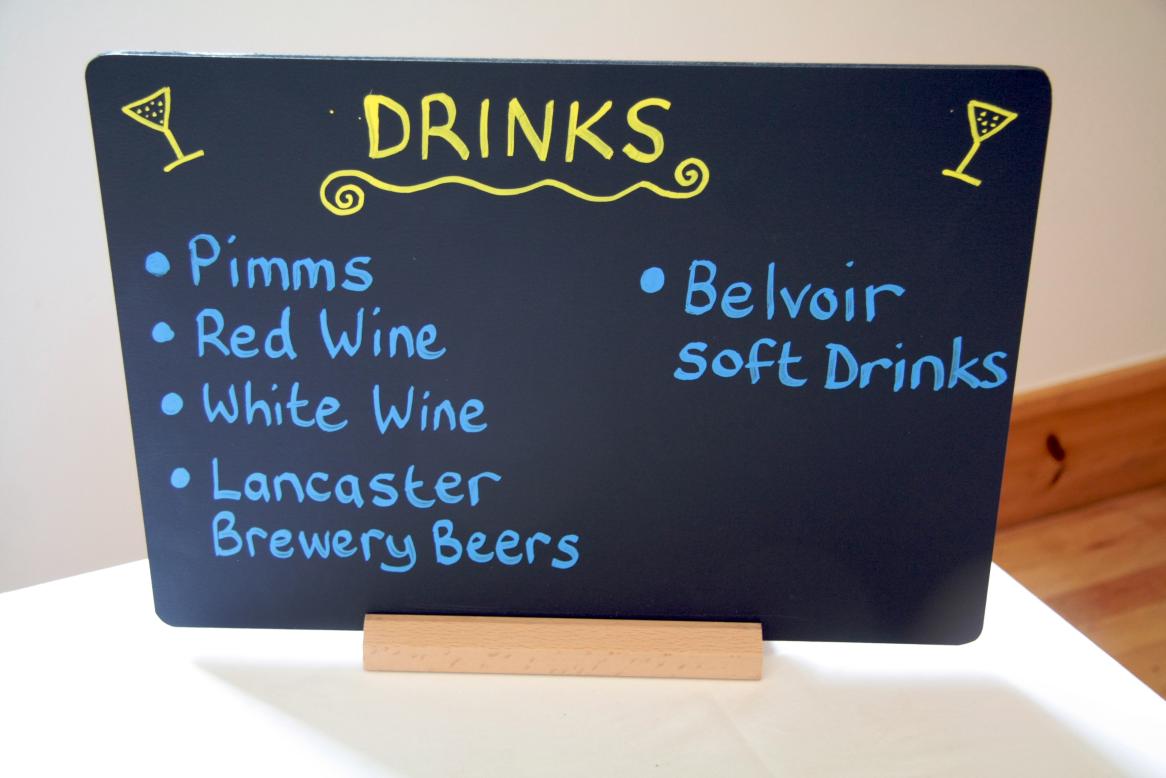 DRINKS
• Pimms
• Red Wine
• White Wine
• Lancaster
Brewery Beers
• Belvoir
soft Drinks